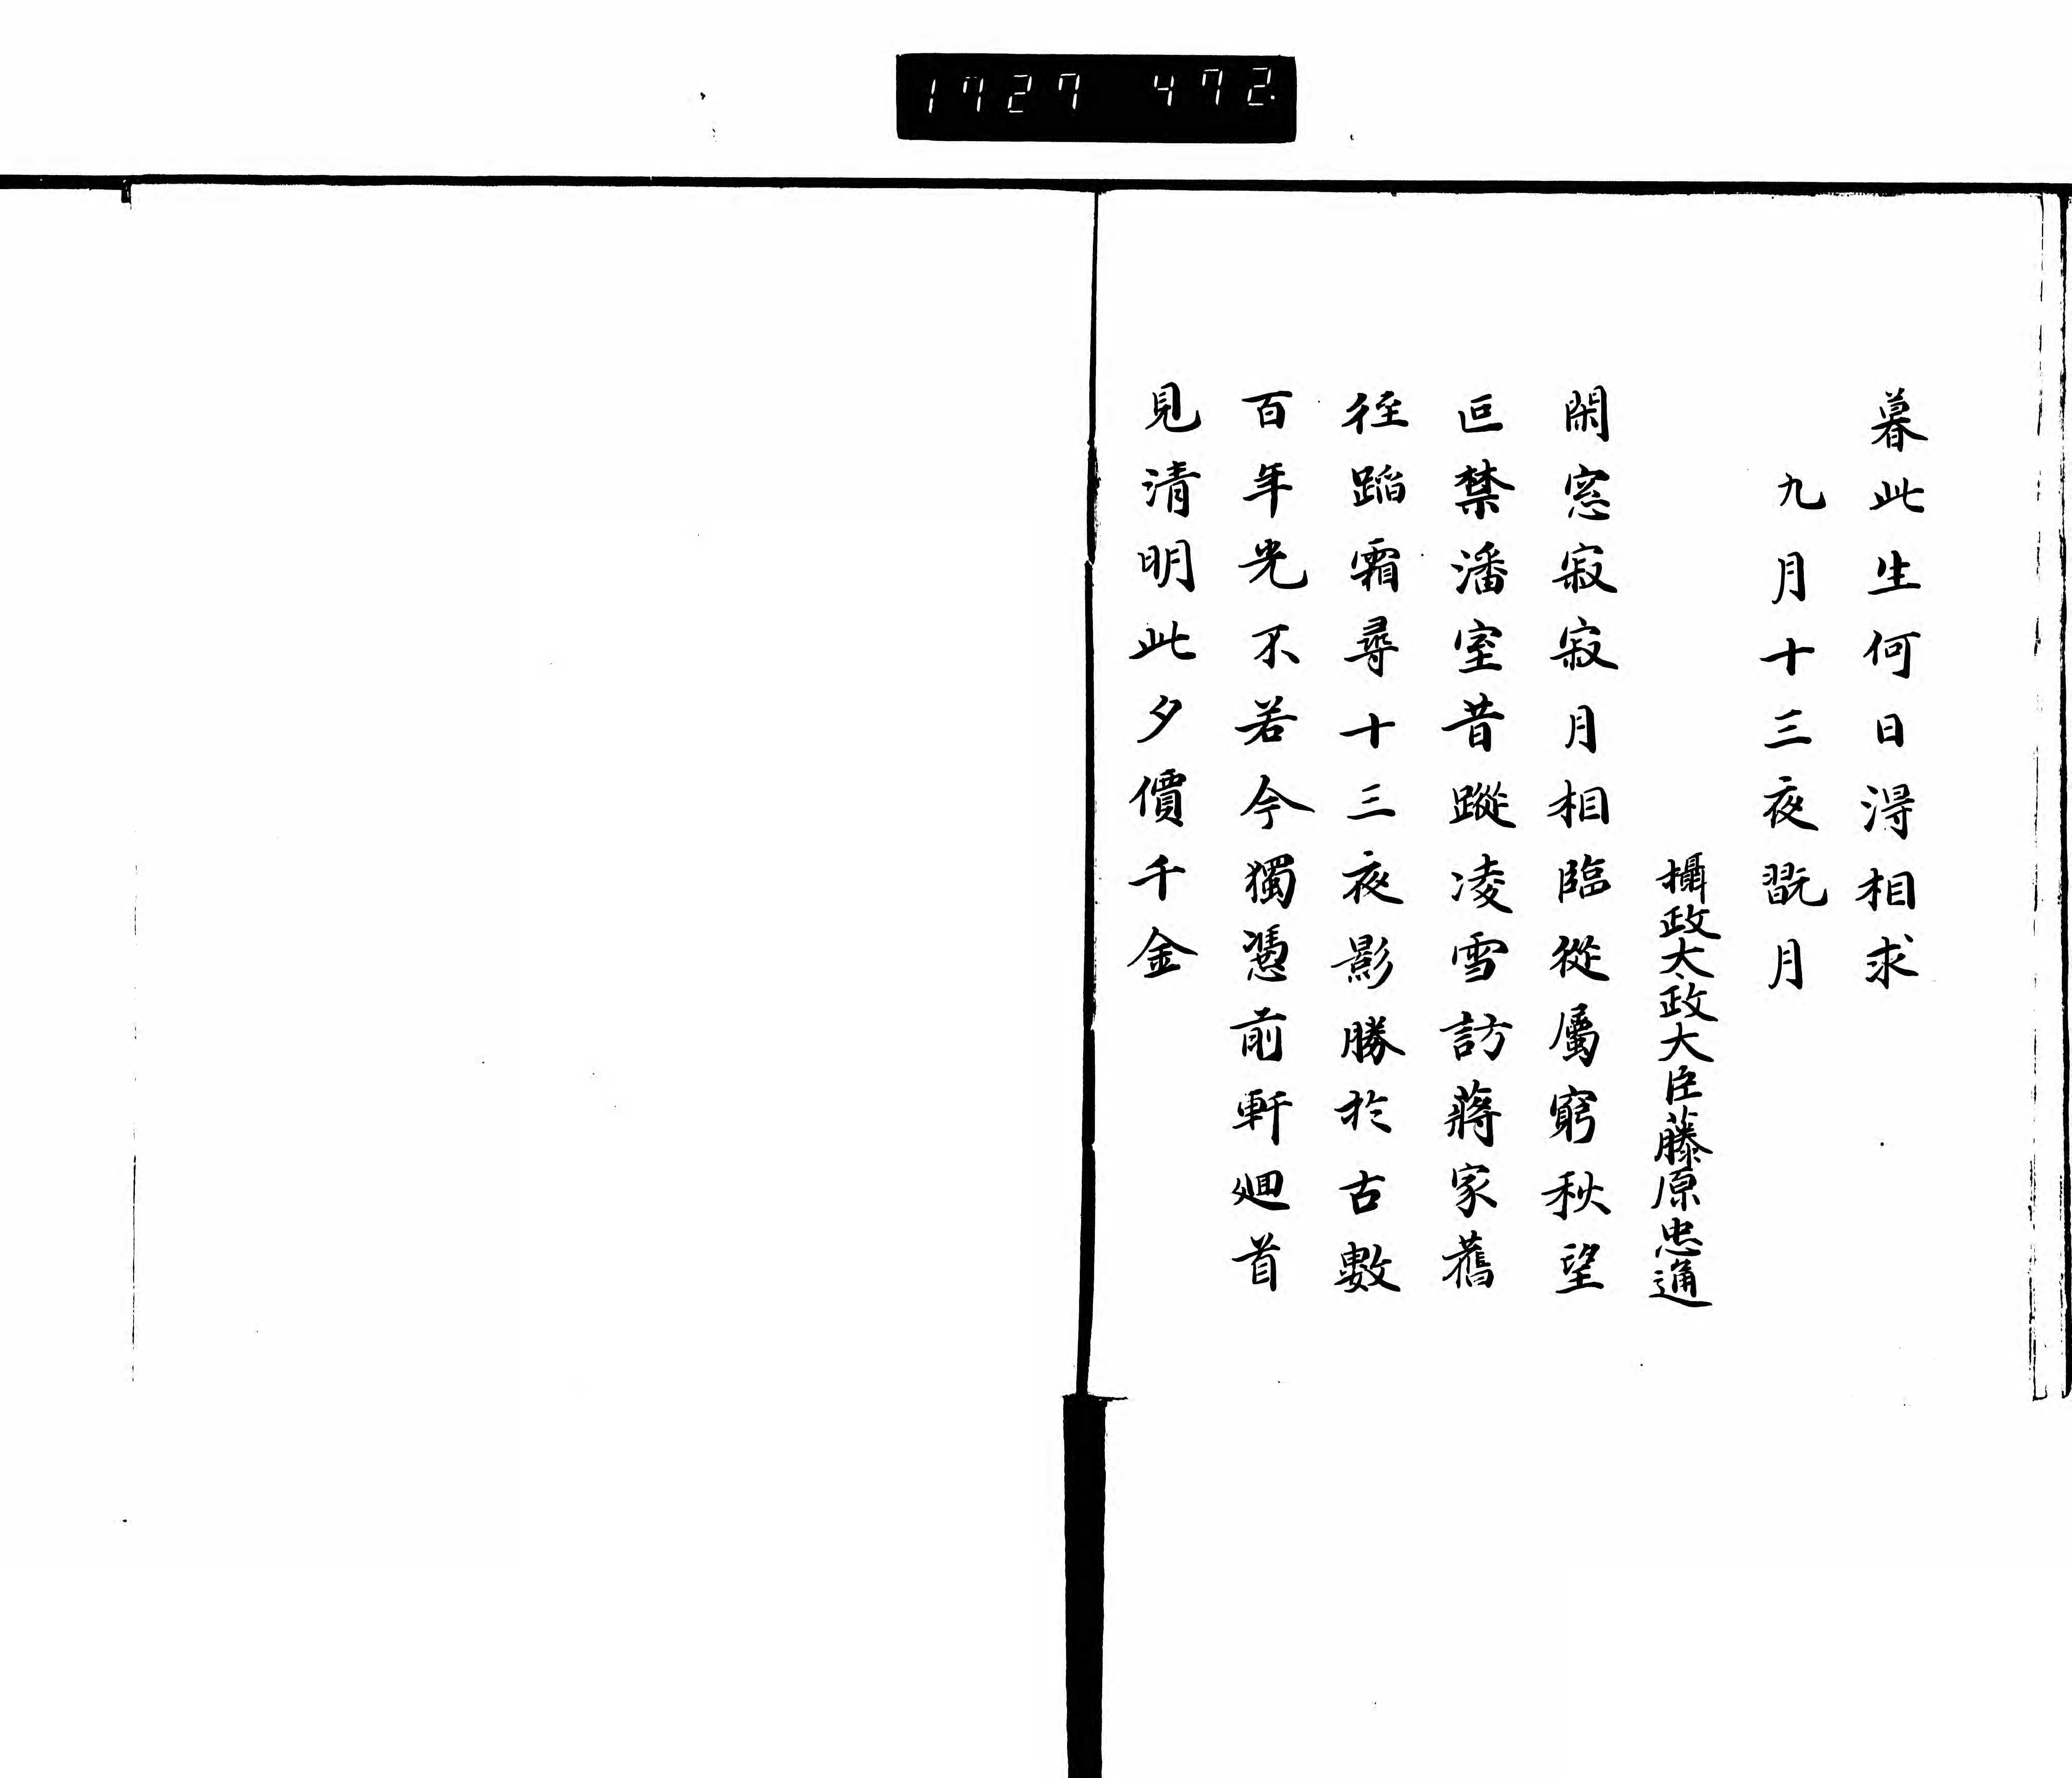 1727 472
暮此生何日得相求
九月十三夜翫月
攝政太政大臣藤原忠通
閑窓寂寂月相臨從屬窮秋望
叵禁潘室昔蹤凌雪訪蔣家舊
徑蹈霜尋十三夜影勝於古數
百年光不若今獨憑前軒廻首
見清明此夕價千金